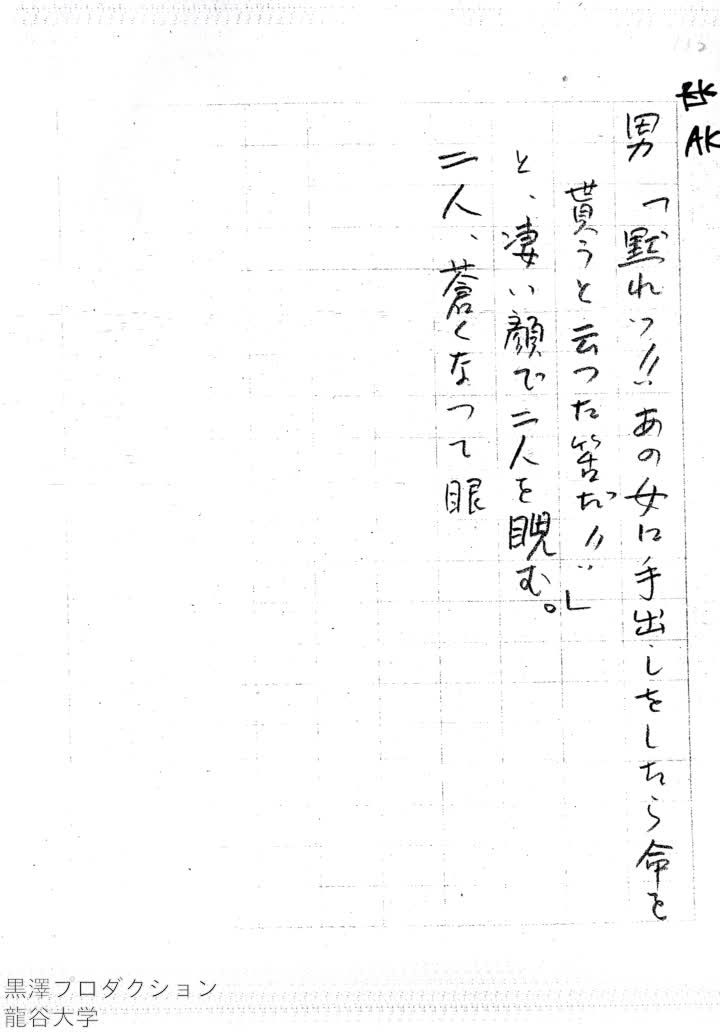 AK
男　「黙れッ!! あの女に手出しをしたら命を
貰うと云つた筈だ!!」
と、凄い顔で二人を睨む。
二人、蒼くなつて眼
黒澤プロダクション
龍谷大学